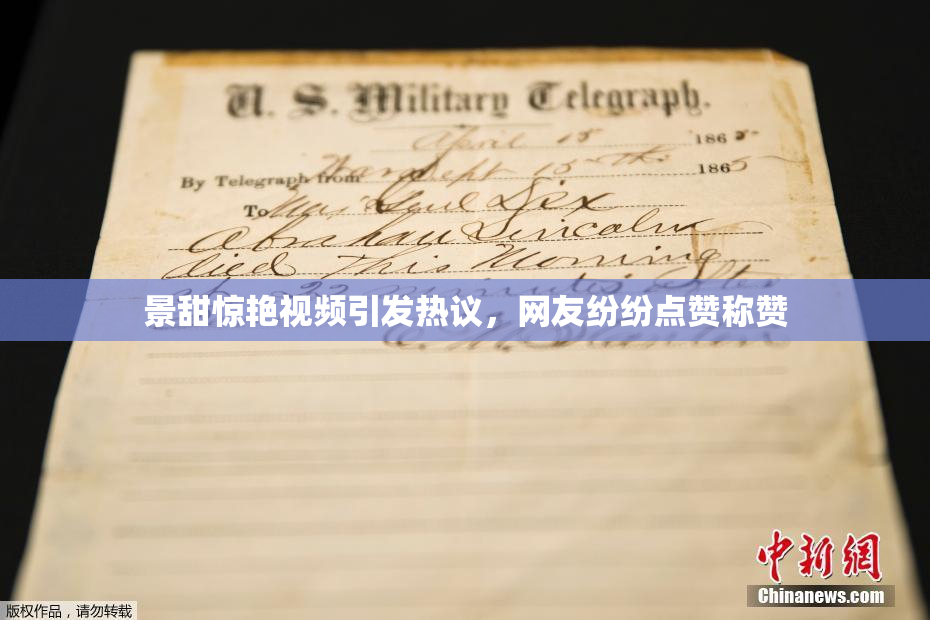 U. S. Military Telegraph.
April 15 1865
By Telegraph from War Dept 15th 1865
To Maj Genl Dix
Abraham Lincoln
died This Morning
at 22 minutes after
景甜惊艳视频引发热议，网友纷纷点赞称赞
E. M. Stanton
中新网
Chinanews.com
版权作品，请勿转载